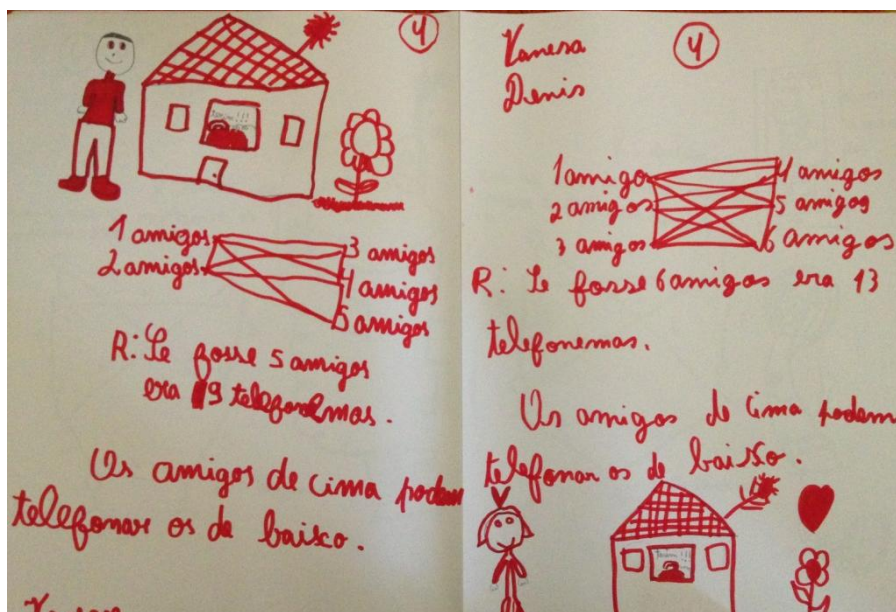 4
1 amigos
2 amigos
3 amigos
4 amigos
5 amigos
R: Se fosse 5 amigos
era 9 telefonemas.
Os amigos de cima podem
telefonar os de baisco.
Vanesa
Denis
4
1 amigo
2 amigos
3 amigos
4 amigos
5 amigos
6 amigos
R: Se fosse 6 amigos era 13
telefonemas.
Os amigos de cima podem
telefonar os de baisco.